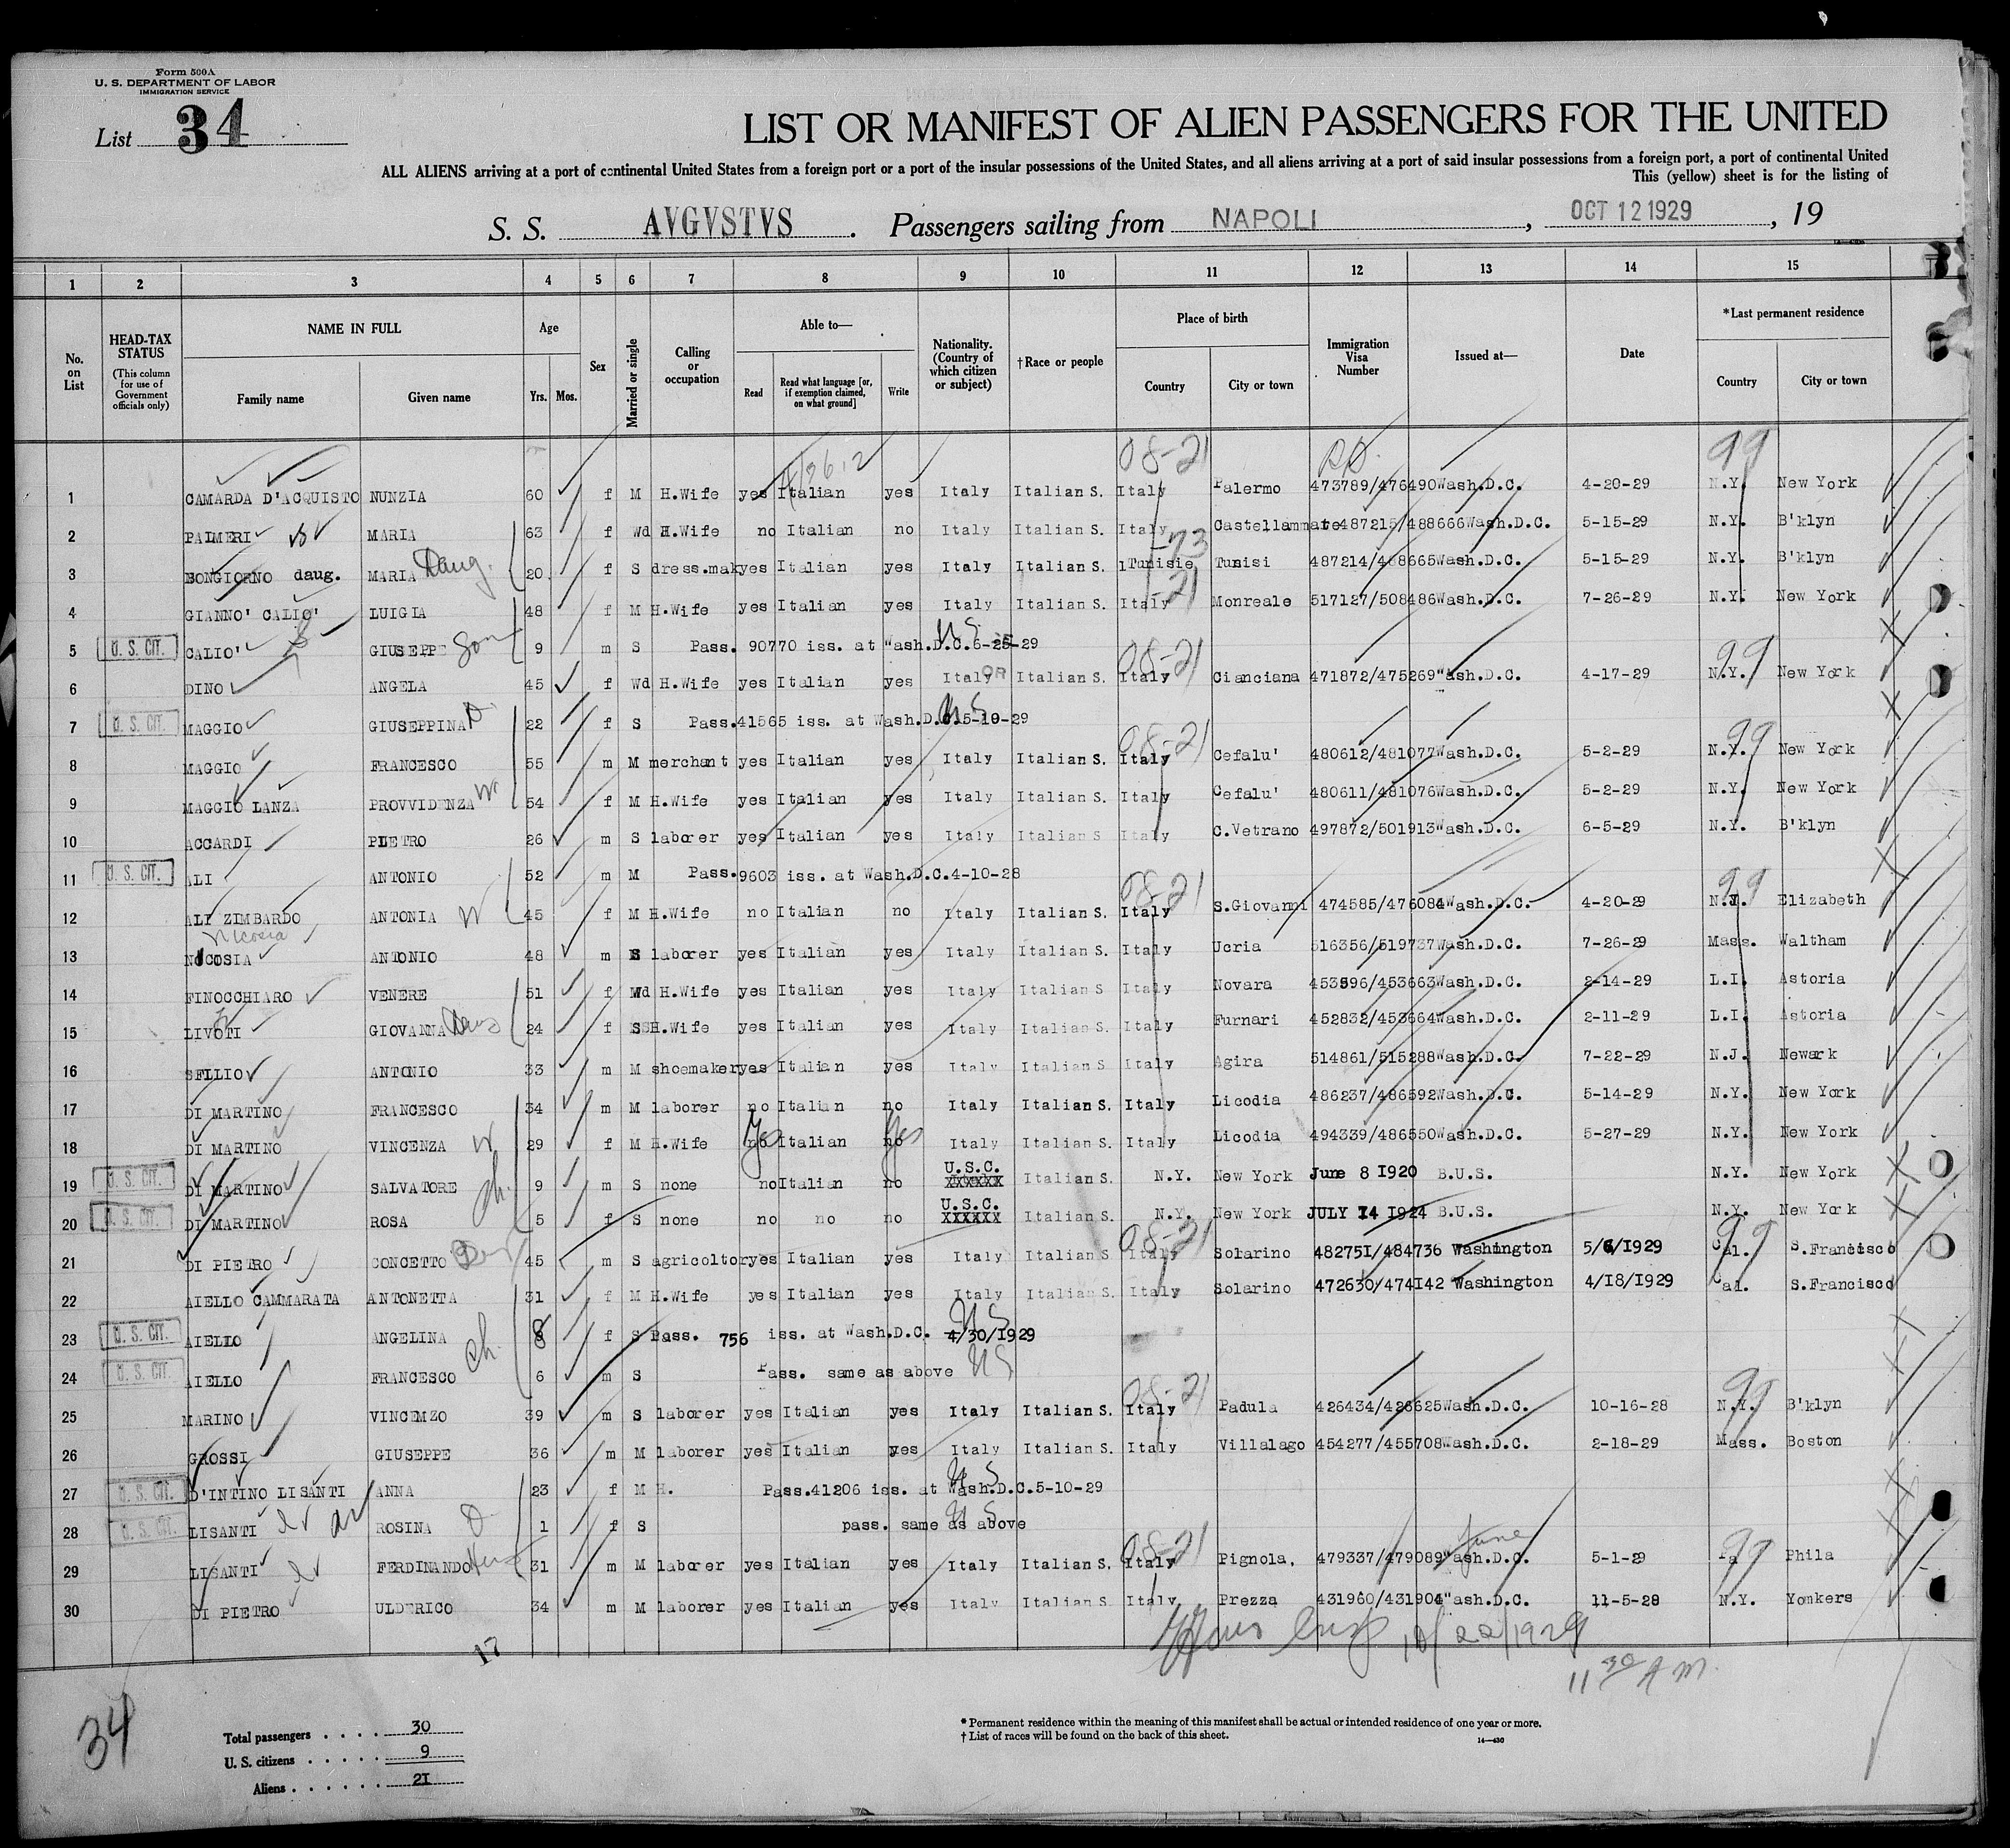 Form 500A
U. S. DEPARTMENT OF LABOR
IMMIGRATION SERVICE
List 34
LIST OR MANIFEST OF ALIEN PASSENGERS FOR THE UNITED
ALL ALIENS arriving at a port of continental United States from a foreign port or a port of the insular possessions of the United States, and all aliens arriving at a port of said insular possessions from a foreign port, a port of continental United
This (yellow) sheet is for the listing of
S. S. AVGVSTVS . Passengers sailing from NAPOLI , OCT 12 1929 , 19
1 2 3 4 5 6 7 8 9 10 11 12 13 14 15
No. on List
HEAD-TAX STATUS
(This column for use of Government officials only)
NAME IN FULL
Family name
Given name
Age
Yrs. Mos.
Sex
Married or single
Calling or occupation
Able to—
Read
Read what language [or, if exemption claimed, on what ground]
Write
Nationality. (Country of which citizen or subject)
†Race or people
Place of birth
Country
City or town
Immigration Visa Number
Issued at—
Date
*Last permanent residence
Country
City or town
08-21 99
1 CAMARDA D'ACQUISTO NUNZIA 60 f M H.Wife yes Italian yes Italy Italian S. Italy Palermo 473789/476490 Wash.D.C. 4-20-29 N.Y. New York
2 PALMERI MARIA 63 f Wd H.Wife no Italian no Italy Italian S. Italy Castellammare 487215/488666 Wash.D.C. 5-15-29 N.Y. B'klyn
3 BONGIORNO daug. MARIA Daug. 20 f S dress.mak yes Italian yes Italy Italian S. Tunisie Tunisi 487214/488665 Wash.D.C. 5-15-29 N.Y. B'klyn
4 GIANNO' CALIO' LUIGIA 48 f M H.Wife yes Italian yes Italy Italian S. Italy Monreale 517127/508486 Wash.D.C. 7-26-29 N.Y. New York
5 U. S. CIT. CALIO' GIUSEPPE Son 9 m S Pass. 90770 iss. at Wash.D.C.6-25-29 U.S.
6 DINO ANGELA 45 f Wd H.Wife yes Italian yes Italy Italian S. Italy Cianciana 471872/475269 Wash.D.C. 4-17-29 N.Y. New York
7 U. S. CIT. MAGGIO GIUSEPPINA D 22 f S Pass.41565 iss. at Wash.D.C.5-10-29
8 MAGGIO FRANCESCO 55 m M merchant yes Italian yes Italy Italian S. Italy Cefalu' 480612/481077 Wash.D.C. 5-2-29 N.Y. New York
9 MAGGIO LANZA PROVVIDENZA W 54 f M H.Wife yes Italian yes Italy Italian S. Italy Cefalu' 480611/481076 Wash.D.C. 5-2-29 N.Y. New York
10 ACCARDI PIETRO 26 m S laborer yes Italian yes Italy Italian S Italy C.Vetrano 497872/501913 Wash.D.C. 6-5-29 N.Y. B'klyn
11 U. S. CIT. ALI ANTONIO 52 m M Pass.9603 iss. at Wash.D.C.4-10-28
12 ALI ZIMBARDO ANTONIA W 45 f M H.Wife no Italian no Italy Italian S. Italy S.Giovanni 474585/476084 Wash.D.C. 4-20-29 N.J. Elizabeth
Nicosia
13 NICOSIA ANTONIO 48 m S laborer yes Italian yes Italy Italian S. Italy Ucria 516356/519737 Wash.D.C. 7-26-29 Mass. Waltham
14 FINOCCHIARO VENERE 51 f Wd H.Wife yes Italian yes Italy Italian S Italy Novara 453596/453663 Wash.D.C. 2-14-29 L.I. Astoria
15 LIVOTI GIOVANNA Daug 24 f S H.Wife yes Italian yes Italy Italian S. Italy Furnari 452832/453664 Wash.D.C. 2-11-29 L.I. Astoria
16 SFILIO ANTONIO 33 m M shoemaker yes Italian yes Italy Italian S Italy Agira 514861/515288 Wash.D.C. 7-22-29 N.J. Newark
17 DI MARTINO FRANCESCO 34 m M laborer no Italian no Italy Italian S. Italy Licodia 486237/486592 Wash.D.C. 5-14-29 N.Y. New York
18 DI MARTINO VINCENZA W 29 f M H.Wife no Yes Italian no Yes Italy Italian S. Italy Licodia 494339/486550 Wash.D.C. 5-27-29 N.Y. New York
19 U. S. CIT. DI MARTINO SALVATORE ch. 9 m S none no Italian no U.S.C. XXXXXX Italian S. N.Y. New York June 8 1920 B.U.S. N.Y. New York
20 U. S. CIT. DI MARTINO ROSA 5 f S none no no no U.S.C. XXXXXX Italian S. N.Y. New York JULY 14 1924 B.U.S. N.Y. New York
21 DI PIETRO CONCETTO 45 m S agricoltor yes Italian yes Italy Italian S Italy Solarino 482751/484736 Washington 5/6/1929 Cal. S.Francisco
22 AIELLO CAMMARATA ANTONETTA 31 f M H.Wife yes Italian yes Italy Italian S. Italy Solarino 472630/474142 Washington 4/18/1929 Cal. S.Francisco
23 U. S. CIT. AIELLO ANGELINA ch. 8 f S Pass. 756 iss. at Wash.D.C. 4/30/1929 US
24 U. S. CIT. AIELLO FRANCESCO 6 m S Pass. same as above US
25 MARINO VINCEMZO 39 m S laborer yes Italian yes Italy Italian S. Italy Padula 426434/426625 Wash.D.C. 10-16-28 N.Y. B'klyn
26 GROSSI GIUSEPPE 36 m M laborer yes Italian yes Italy Italian S. Italy Villalago 454277/455708 Wash.D.C. 2-18-29 Mass. Boston
27 U. S. CIT. D'INTINO LISANTI ANNA 23 f M H. Pass.41206 iss. at Wash.D.C.5-10-29 US
28 U. S. CIT. LISANTI ROSINA D 1 f S pass. same as above US
29 LISANTI FERDINANDO 31 m M laborer yes Italian yes Italy Italian S. Italy Pignola. 479337/479089 Wash.D.C. June 5-1-29 Pa Phila
30 DI PIETRO ULDERICO 34 m M laborer yes Italian yes Italy Italian S. Italy Prezza 431960/431904 Wash.D.C. 11-5-28 N.Y. Yonkers
17
10/22/1929
11 30 A M.
34
Total passengers . . . . . 30
U. S. citizens . . . . . . 9
Aliens . . . . . . 21
* Permanent residence within the meaning of this manifest shall be actual or intended residence of one year or more.
† List of races will be found on the back of this sheet.
14—430